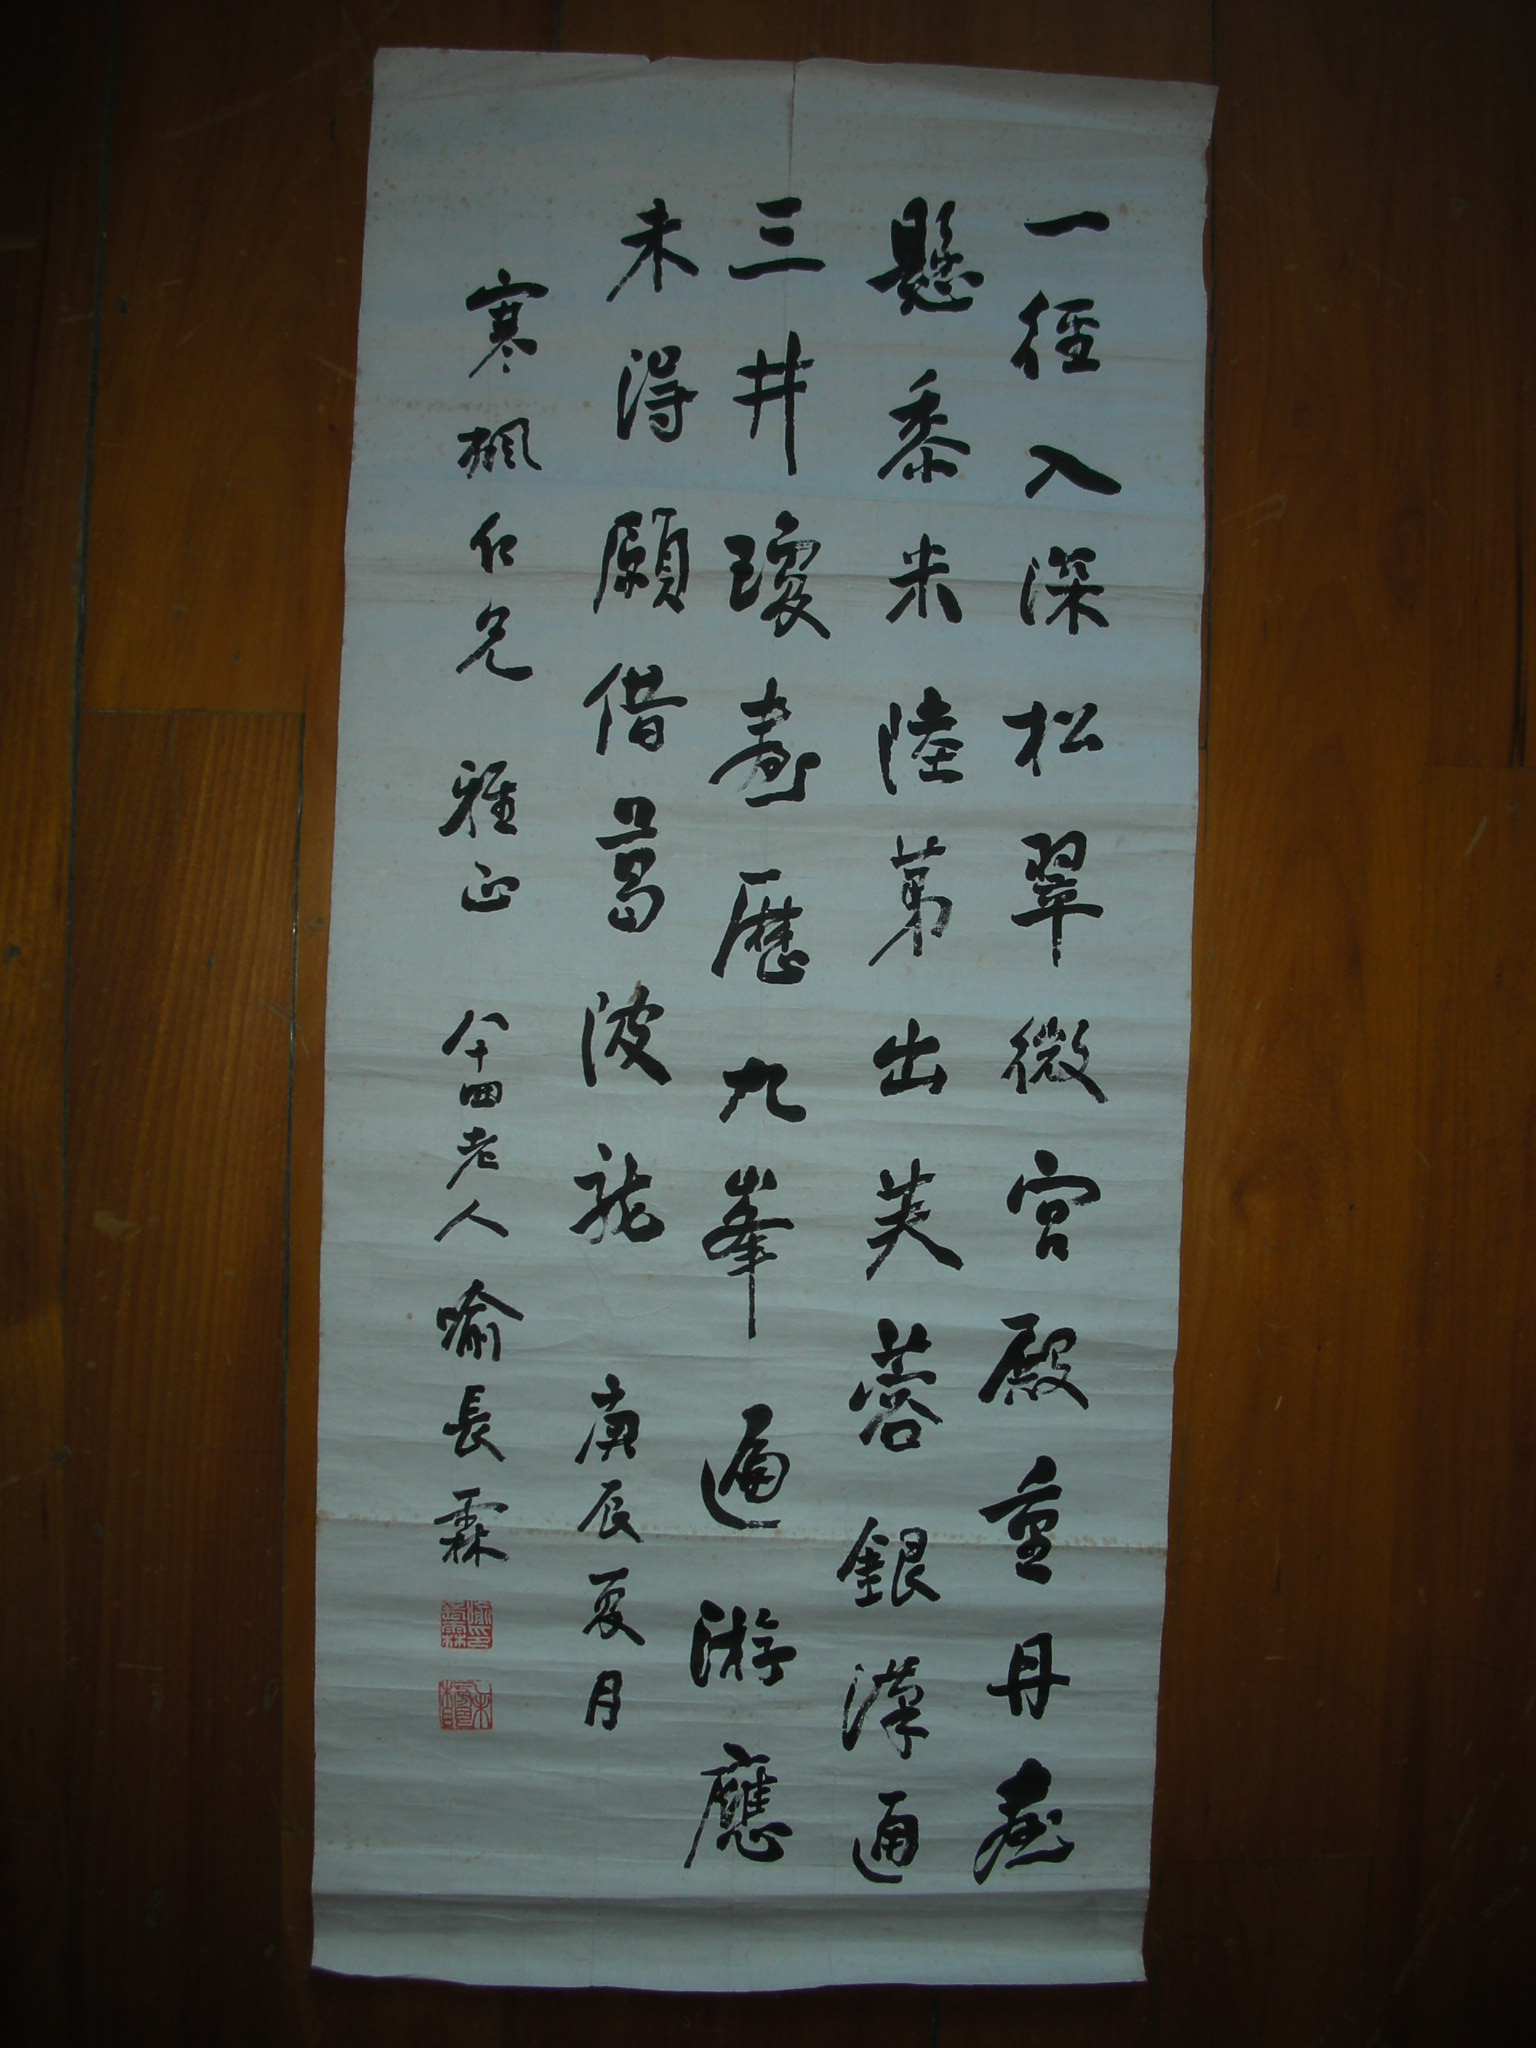 一徑入深松翠微宮殿重丹
懸黍米陸第出芙蓉銀漢通
三井瓊臺歷九峯遍游應
未得願借葛陂龍 庚辰夏月
寒楓仁兄 雅正 八十四老人喻長霖